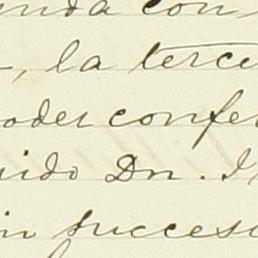 unda con
, la terce
oder confer
uido Dn.
in succes